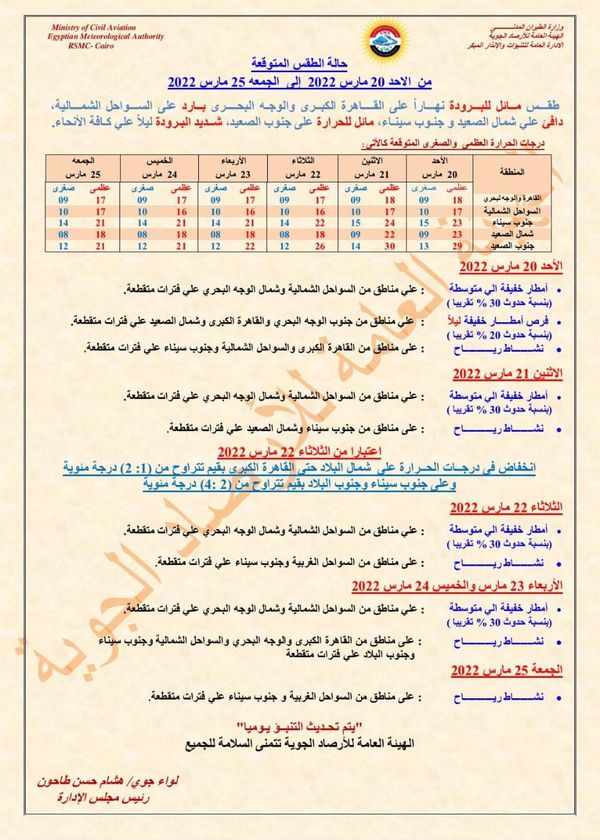 وزارة الطيران المدنـــى
الهيئة العامة للأرصاد الجوية
الادارة العامة للتنبؤات والإنذار المبكر
Ministry of Civil Aviation
Egyptian Meteorological Authority
RSMC- Cairo
حالة الطقس المتوقعة
من الاحد 20 مارس 2022 إلى الجمعه 25 مارس 2022
طقـــس مــائل للبـرودة نهـاراً على القــاهرة الكبـرى والوجـه البحــرى بــارد على السـواحل الشمـاليـة،
دافئ علي شمال الصعيد و جنـوب سينـاء، مائل للحرارة على جنوب الصعيد، شـديد البـرودة ليلاً علي كـافة الأنحـاء.
درجات الحرارة العظمي والصغرى المتوقعة كالآتي:
المنطقة الأحد 20 مارس الاثنين 21 مارس الثلاثاء 22 مارس الأربعاء 23 مارس الخميس 24 مارس الجمعه 25 مارس
عظمى صغرى عظمى صغرى عظمى صغرى عظمى صغرى عظمى صغرى عظمى صغرى
القاهرة والوجه لبحري 18 09 18 09 17 09 17 09 17 09 17 09
السواحل الشمالية 17 10 17 10 16 10 16 10 16 10 17 10
جنوب سيناء 23 15 24 15 22 14 21 14 21 14 21 14
شمال الصعيد 23 09 22 09 18 08 18 08 18 08 18 08
جنوب الصعيد 29 13 30 14 26 12 22 12 21 12 21 12
الأحد 20 مارس 2022
• أمطار خفيفة الي متوسطة : علي مناطق من السواحل الشمالية وشمال الوجه البحري علي فترات متقطعة.
(بنسبة حدوث 30 % تقريبا )
• فرص أمطــار خفيفة ليلاً : علي مناطق من جنوب الوجه البحري والقاهرة الكبرى وشمال الصعيد علي فترات متقطعة.
(بنسبة حدوث 20 % تقريبا )
• نشـــاط ريـــــاح : على مناطق من القاهرة الكبرى والسواحل الشمالية وجنوب سيناء علي فترات متقطعة.
الاثنين 21 مارس 2022
• أمطار خفيفة الي متوسطة : علي مناطق من السواحل الشمالية وشمال الوجه البحري علي فترات متقطعة.
(بنسبة حدوث 30 % تقريبا )
• نشـــاط ريـــــاح : على مناطق من جنوب سيناء وشمال الصعيد علي فترات متقطعة.
اعتبارا من الثلاثاء 22 مارس 2022
انخفاض فى درجـات الحـرارة علي شمال البلاد حتى القاهرة الكبرى بقيم تتراوح من (1: 2) درجة مئوية
وعلى جنوب سيناء وجنوب البلاد بقيم تتراوح من (2 :4) درجة مئوية
الثلاثاء 22 مارس 2022
• أمطار خفيفة الي متوسطة : علي مناطق من السواحل الشمالية وشمال الوجه البحري علي فترات متقطعة.
(بنسبة حدوث 30 % تقريبا )
• نشـــاط ريـــــاح : علي مناطق من السواحل الغربية وجنوب سيناء علي فترات متقطعة.
الأربعاء 23 مارس والخميس 24 مارس 2022
• أمطار خفيفة الي متوسطة : علي مناطق من السواحل الشمالية وشمال الوجه البحري علي فترات متقطعة.
(بنسبة حدوث 30 % تقريبا )
• نشـــاط ريـــــاح : علي مناطق من القاهرة الكبرى والوجه البحري والسواحل الشمالية وجنوب سيناء
وجنوب البلاد علي فترات متقطعة
الجمعة 25 مارس 2022
• نشـــاط ريـــــاح : علي مناطق من السواحل الغربية و جنوب سيناء علي فترات متقطعة.
"يتم تحـديث التنبـؤ يـوميا"
الهيئة العامة للأرصاد الجوية تتمنى السلامة للجميع
لواء جوي/ هشام حسن طاحون
رئيس مجلس الإدارة
الهيئة العامة للأرصاد الجوية